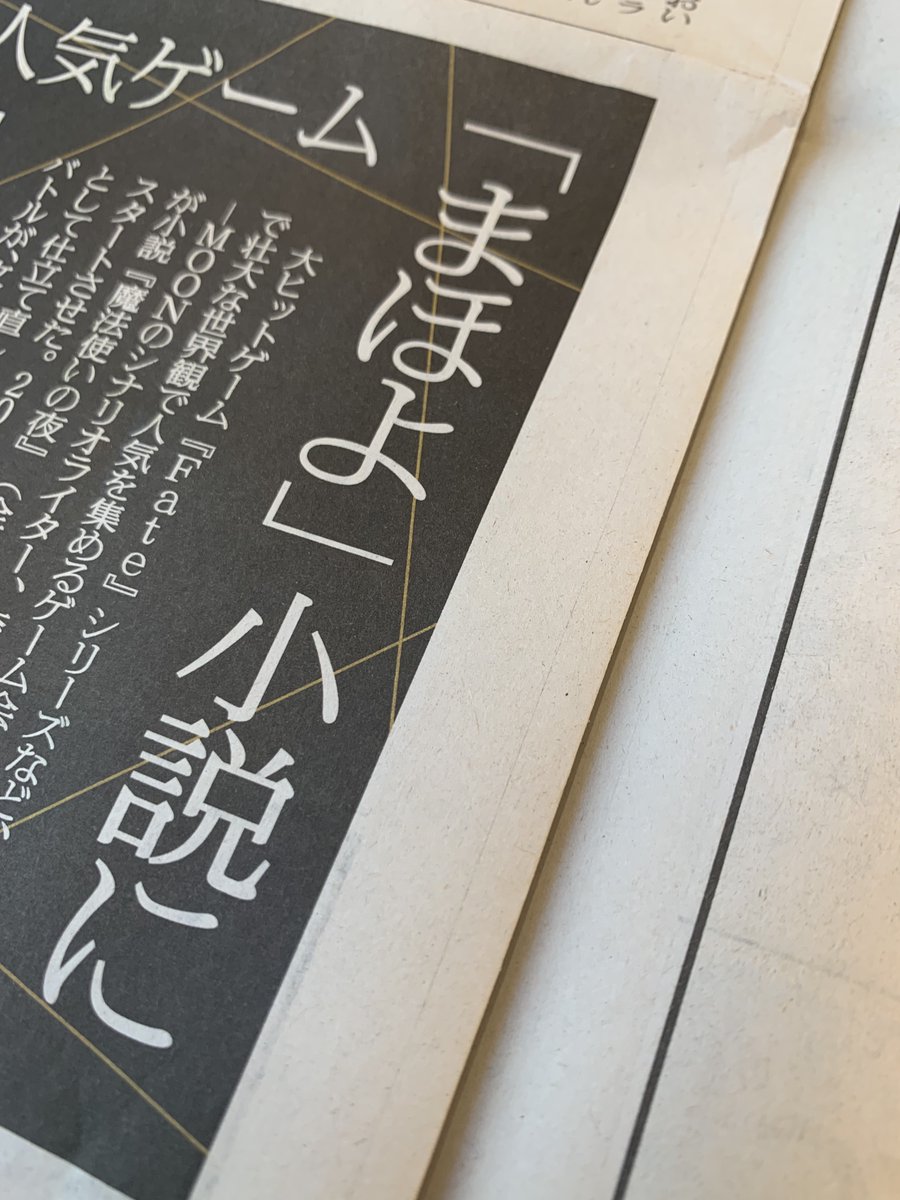 人気ゲーム
「まほよ」小説に
大ヒットゲーム『Fate』シリーズなど
で壮大な世界観で人気を集めるゲーム会
―MOONのシナリオライター、
が小説『魔法使いの夜』
スタートさせた。20
として仕立て直し
バトルが
おい
ラ